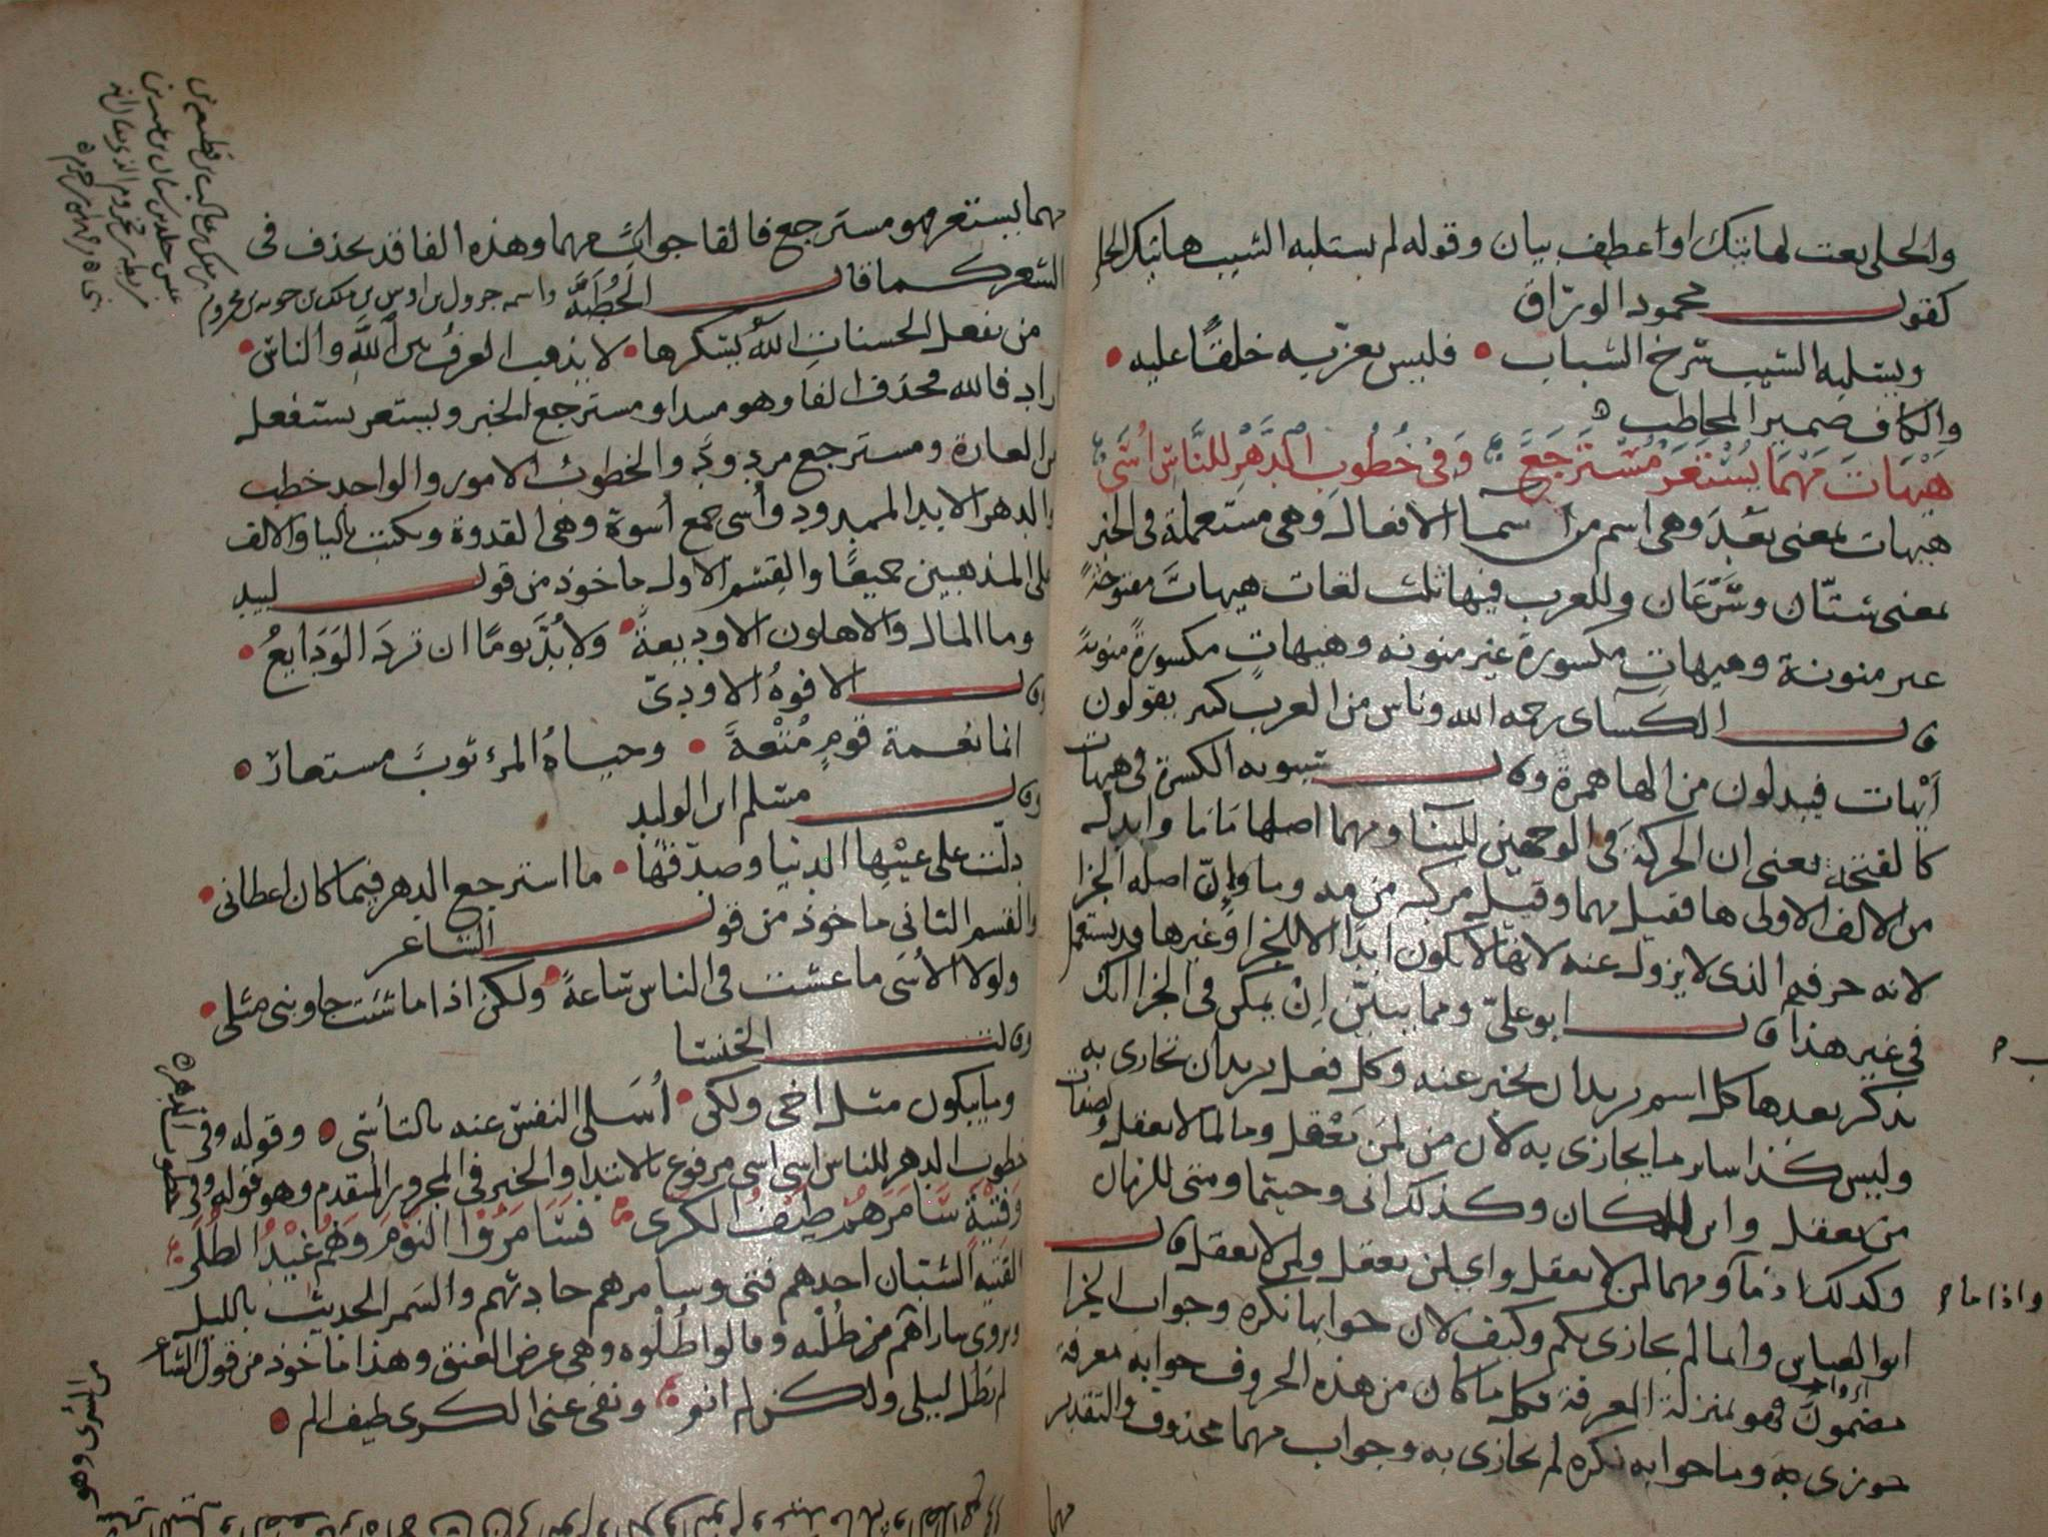 والحلى نعت لهاتيك او اعطف بيان وقوله لم يستلبه الشيب هاتيك الحلى
كقول محمود الوراق
ويستلبه الشيب شرخ الشباب • فليس يعزيه خلقا عليه •
والكاف ضمير المخاطب ه
هَيْهَاتَ مَهْمَا يُسْتَعَرْ مُسْتَرْجَعٌ وَفِى خُطُوبِ الدَّهْرِ لِلنَّاسِ أُسًى
هيهات بمعنى بَعُدَ وهى اسم من اسما الافعال وهى مستعملة فى الخبر
بمعنى شتّان وسَرْعَان وللعرب فيها ثلث لغات هيهاتَ مفتوحةً
غير منونة وهيهاتِ مكسورة غير منونه وهيهاتٍ مكسورةً منونةً
قال الكسآى رحمه الله وناس من العرب كثير يقولون
أيْهات فيبدلون من الها همزةً وقال سيبويه الكسرة فى هيهات
كالفتحة يعنى ان الحركة فى الوجهين للبنا ومهما اصلها مَا مَا وابدلت
من الالف الاولى ها فقيل مهما وقيل مركبه من مه وما وإنّ اصله الجزا
لانه حرفهم الذى لا يزول عنه لانها لا تكون ابدًا الا للجزا وغيرها قد يستعمل
فى غير هذا قال ابو علىّ ومما يبين إنْ يمكن فى الجزا انك
تذكر بعدها كل اسم تريد ان تخبر عنه وكل فعل تريد ان تجازى به
وليس كذا ساير ما يجازى به لان من لمن يَعْقِل وما لما لا يعقل ولصفات
من يعقل واين للمكان وكذلك انى وحيثما ومتى للزمان
وكذلك اذ ما ومهما لمن لا يعقل واى لمن يعقل ولمن لا يعقل قال
واذا ما
ابو العباس وانما لم يجازى بكم وكيف لان جوابها نكره وجواب الجزا
مضمون فهو بمنزلة المعرفة فكل ما كان من هذه الحروف جوابه معرفة
جوزى به وما جوابه نكره لم يجازى به وجواب مهما محذوف والتقدير
مهما
مهما يستعر فهو مسترجع فالفا جوابُ مهما وهذه الفا قد تحذف فى
الشعر كما قال الحُطَيْئَة واسمه جرول بن اوس بن ملك بن جويه بن مخزوم
من يفعل الحسناتِ اللهُ يشكرها • لا يذهب العرفُ بين اللهِ والناس •
اراد فالله فحذف الفا وهو مبتدا ومسترجع الخبر ويستعر يستفعل
من العارة ومسترجع مردودٌ والخطوبُ الامور والواحد خطب
والدهر الابد الممدود وأُسى جمع أُسوة وهى القدوة وتكتب باليا والالف
على المذهبين جميعًا والقسم الاول ماخوذ من قول لبيد
وما المال والاهلون الا وديعةٌ • ولا بُدَّ يومًا ان تردَ الوَدَايِعُ •
وقال الافوهُ الاودىّ
انما نعمة قومٍ مُتْعةٌ • وحياةُ المرء ثوبٌ مستعار •
وقال مسلم ابن الوليد
دلّت على عيْبِها الدنيا وصدّقها • ما استرجع الدهر فيما كان اعطانى •
والقسم الثانى ماخوذ من قول الشاعر
ولولا الأسَى ما عشت فى الناس ساعةً • ولكن اذا ما شئت جاوبنى مثلى •
وقالت الخنسا
وما يبكون مثل اخى ولكن • أُسَلى النفس عنه بالتأسّى • وقوله وفى
خطوب الدهر للناس اسى اسى مرفوع بالابتدا والخبر فى المجرور المتقدم وهو قوله وفى
خطوب الدهر
وَفِتْيَةٍ سَامَرَهُمْ طَيْفُ الْكَرَى فَسَامَرُوا النَّوْمَ وَهُمْ غِيْدُ الطُّلَى
الفتية الشبان احدهم فتى وسامرهم حادثهم والسَمر الحديث بالليل
لم يَطُل ليلى ولكن لم انم ونفى عنى الكرى طيف الم •
من السُرى وهو